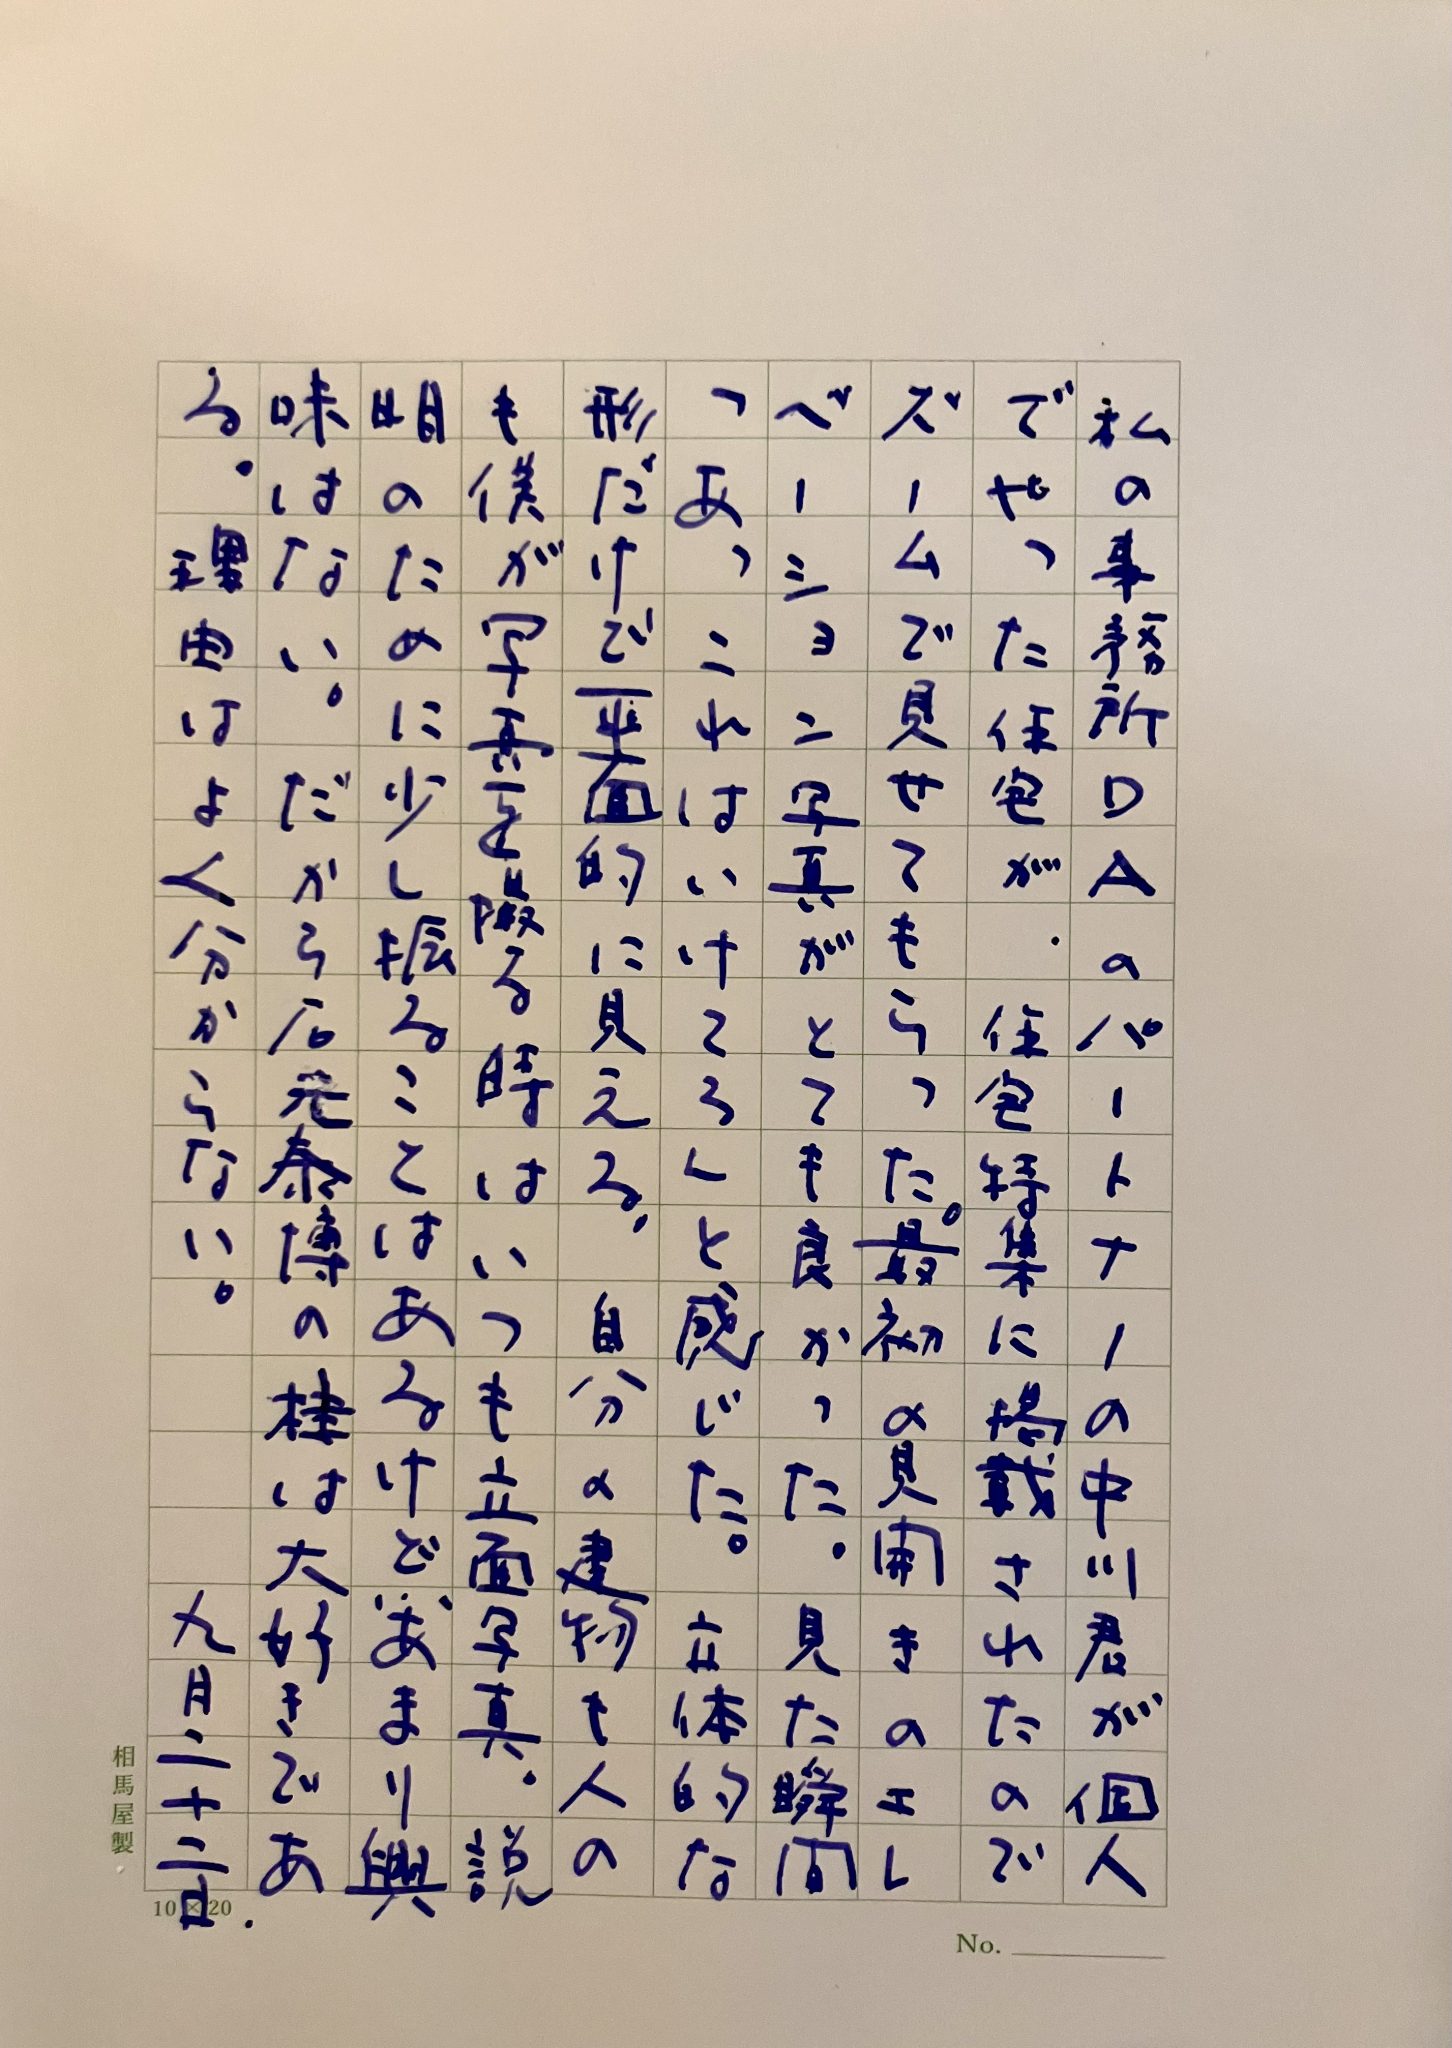 私の事務所DAのパートナーの中川君が個人
でやった住宅が.住宅特集に掲載されたので
ズームで見せてもらった。最初の見開きのエレ
ベーションの写真がとても良かった。見た瞬間
「あっこれはいけてる」と感じた。立体的な
形だけで平面的に見える。自分の建物も人の
も僕が写真を撮る時はいつも立面写真。説
明のために少し振ることはあるけどあまり興
味はない。だから石元泰博の桂は大好きであ
る。理由はよく分からない。
九月二十二日.
相馬屋製
10×20
No.